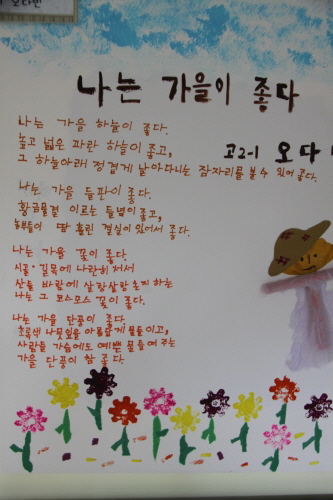 오다빈
나는 가을이 좋다
고2-1 오다
나는 가을 하늘이 좋다.
높고 넓은 파란 하늘이 좋고,
그 하늘아래 정겹게 날아다니는 잠자리를 볼수 있어 좋다.
나는 가을 들판이 좋다.
황금물결 이르는 들녘이 좋고,
농부들이 땀 흘린 결실이 있어서 좋다.
나는 가을 꽃이 좋다.
시골 길목에 나란히 서서
산들 바람에 살랑살랑 손짓 하는
나는 그 코스모스 꽃이 좋다.
나는 가을 단풍이 좋다
초록색 나뭇잎을 아름답게 물들이고,
사람들 가슴에도 예쁜 물들여 주는
가을 단풍이 참 좋다.